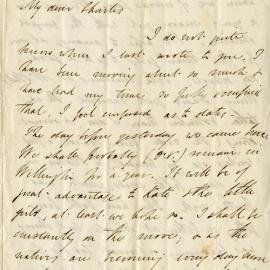 My dear Charles
I do not quite
know when I last wrote to you. I
have been moving about so much &
have had my time so fully occupied
that I feel confused as to dates.
The day before yesterday we came here.
We shall probably (D.V.) remain in
Wellington for a year. It will be of
great advantage to Kate & the little
girls, at least we hope so. I shall be
constantly on the move, & as the
natives are becoming every day more